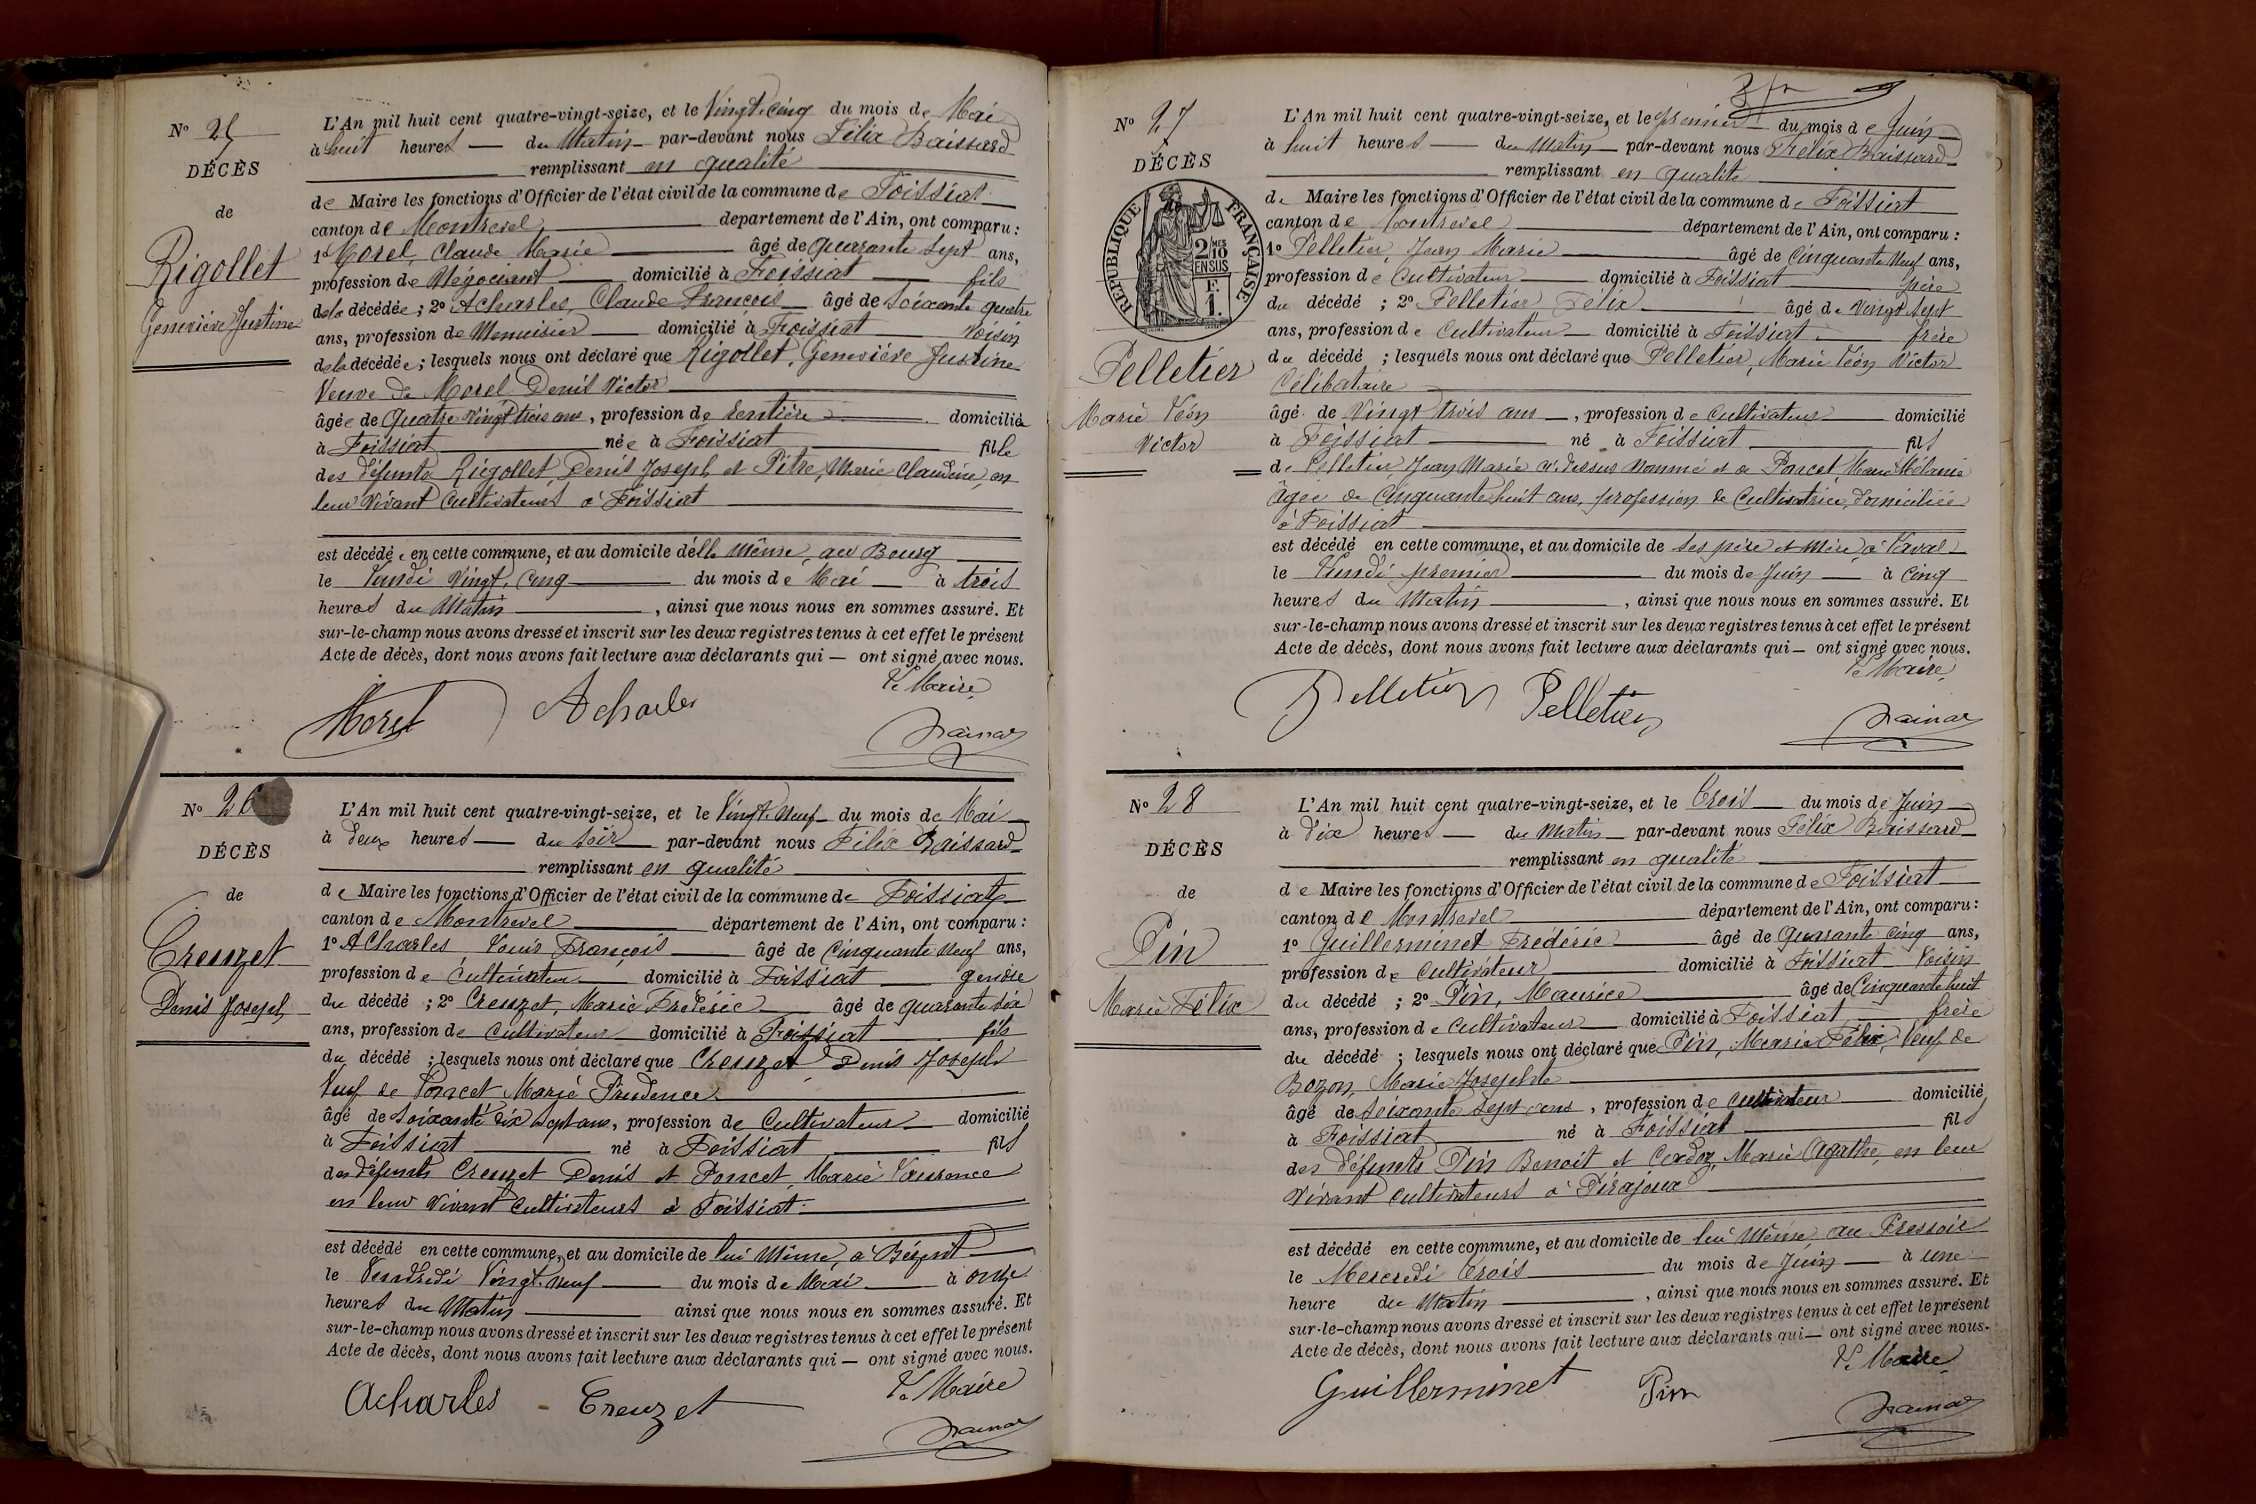 N° 25
DÉCÈS
de
Rigollet
Geneviève Justine
L'An mil huit cent quatre-vingt-seize, et le Vingt cinq du mois de Mai
à huit heures du Matin par-devant nous Félix Baissard
remplissant en qualité
de Maire les fonctions d'Officier de l'état civil de la commune de Foissiat
canton de Montrevel département de l'Ain, ont comparu :
1° Morel, Claude Marie âgé de quarante sept ans,
profession de Négociant domicilié à Foissiat fils
de la décédée ; 2° Acharles, Claude François âgé de Soixante quatre
ans, profession de Menuisier domicilié à Foissiat Voisin
de la décédée ; lesquels nous ont déclaré que Rigollet, Geneviève Justine
Veuve de Morel Denis Victor
âgée de Quatre Vingt trois ans, profession de Rentière domiciliée
à Foissiat née à Foissiat fille
des défunts Rigollet, Denis Joseph et Pitre, Marie Claudine, en
leur Vivant Cultivateurs à Foissiat
est décédée en cette commune, et au domicile d'elle Même, au Bourg
le Lundi Vingt cinq du mois de Mai à trois
heures du Matin, ainsi que nous nous en sommes assuré. Et
sur-le-champ nous avons dressé et inscrit sur les deux registres tenus à cet effet le présent
Acte de décès, dont nous avons fait lecture aux déclarants qui — ont signé avec nous.
Le Maire,
Morel Acharles
N° 26
DÉCÈS
de
Creuzet
Denis Joseph
L'An mil huit cent quatre-vingt-seize, et le Vingt Neuf du mois de Mai
à deux heures du soir par-devant nous Félix Baissard
remplissant en qualité
de Maire les fonctions d'Officier de l'état civil de la commune de Foissiat
canton de Montrevel département de l'Ain, ont comparu :
1° Acharles, Louis François âgé de Cinquante Neuf ans,
profession de Cultivateur domicilié à Foissiat gendre
du décédé ; 2° Creuzet, Marie Frédéric âgé de quarante six
ans, profession de Cultivateur domicilié à Foissiat fils
du décédé ; lesquels nous ont déclaré que Creuzet Denis Joseph
Veuf de Poncet Marie Prudence
âgé de Soixante dix sept ans, profession de Cultivateur domicilié
à Foissiat né à Foissiat fils
des défunts Creuzet Denis et Poncet, Marie Laurence
en leur Vivant Cultivateurs à Foissiat
est décédé en cette commune, et au domicile de lui Même, à Bézent
le Vendredi Vingt Neuf du mois de Mai à onze
heures du Matin ainsi que nous nous en sommes assuré. Et
sur-le-champ nous avons dressé et inscrit sur les deux registres tenus à cet effet le présent
Acte de décès, dont nous avons fait lecture aux déclarants qui — ont signé avec nous.
Le Maire
Acharles Creuzet
N° 27
DÉCÈS
RÉPUBLIQUE FRANÇAISE
2 10MES
EN SUS
F.
1.
Pelletier
Marie Léon
Victor
L'An mil huit cent quatre-vingt-seize, et le premier du mois de Juin
à huit heures du Matin par-devant nous Félix Baissard
remplissant en qualité
de Maire les fonctions d'Officier de l'état civil de la commune de Foissiat
canton de Montrevel département de l'Ain, ont comparu :
1° Pelletier, Jean Marie âgé de Cinquante Neuf ans,
profession de Cultivateur domicilié à Foissiat père
du décédé ; 2° Pelletier Félix âgé de Vingt Sept
ans, profession de Cultivateur domicilié à Foissiat frère
du décédé ; lesquels nous ont déclaré que Pelletier, Marie Léon Victor
Célibataire
âgé de Vingt trois ans, profession de Cultivateur domicilié
à Foissiat né à Foissiat fils
de Pelletier Jean Marie ci-dessus Nommé et de Poncet, Marie Mélanie
âgée de Cinquante huit ans, profession de Cultivatrice, domiciliée
à Foissiat
est décédé en cette commune, et au domicile de ses père et mère, à Laval
le Lundi premier du mois de Juin à Cinq
heures du Matin, ainsi que nous nous en sommes assuré. Et
sur-le-champ nous avons dressé et inscrit sur les deux registres tenus à cet effet le présent
Acte de décès, dont nous avons fait lecture aux déclarants qui — ont signé avec nous.
Le Maire,
Pelletier Pelletier
N° 28
DÉCÈS
de
Pin
Marie Félix
L'An mil huit cent quatre-vingt-seize, et le Trois du mois de Juin
à dix heures du Matin par-devant nous Félix Baissard
remplissant en qualité
de Maire les fonctions d'Officier de l'état civil de la commune de Foissiat
canton de Montrevel département de l'Ain, ont comparu :
1° Guillerminet Frédéric âgé de quarante cinq ans,
profession de Cultivateur domicilié à Foissiat Voisin
du décédé ; 2° Pin, Maurice âgé de Cinquante huit
ans, profession de Cultivateur domicilié à Foissiat frère
du décédé ; lesquels nous ont déclaré que Pin, Marie Félix, Veuf de
Bozon, Marie Josephte
âgé de soixante sept ans, profession de Cultivateur domicilié
à Foissiat né à Foissiat fils
des défunts Pin Benoit et Cordoz, Marie Agathe, en leur
Vivant Cultivateurs à Pirajoux
est décédé en cette commune, et au domicile de lui Même au Pressoir
le Mercredi Trois du mois de Juin à une
heure du Matin, ainsi que nous nous en sommes assuré. Et
sur-le-champ nous avons dressé et inscrit sur les deux registres tenus à cet effet le présent
Acte de décès, dont nous avons fait lecture aux déclarants qui — ont signé avec nous.
Le Maire,
Guillerminet Pin